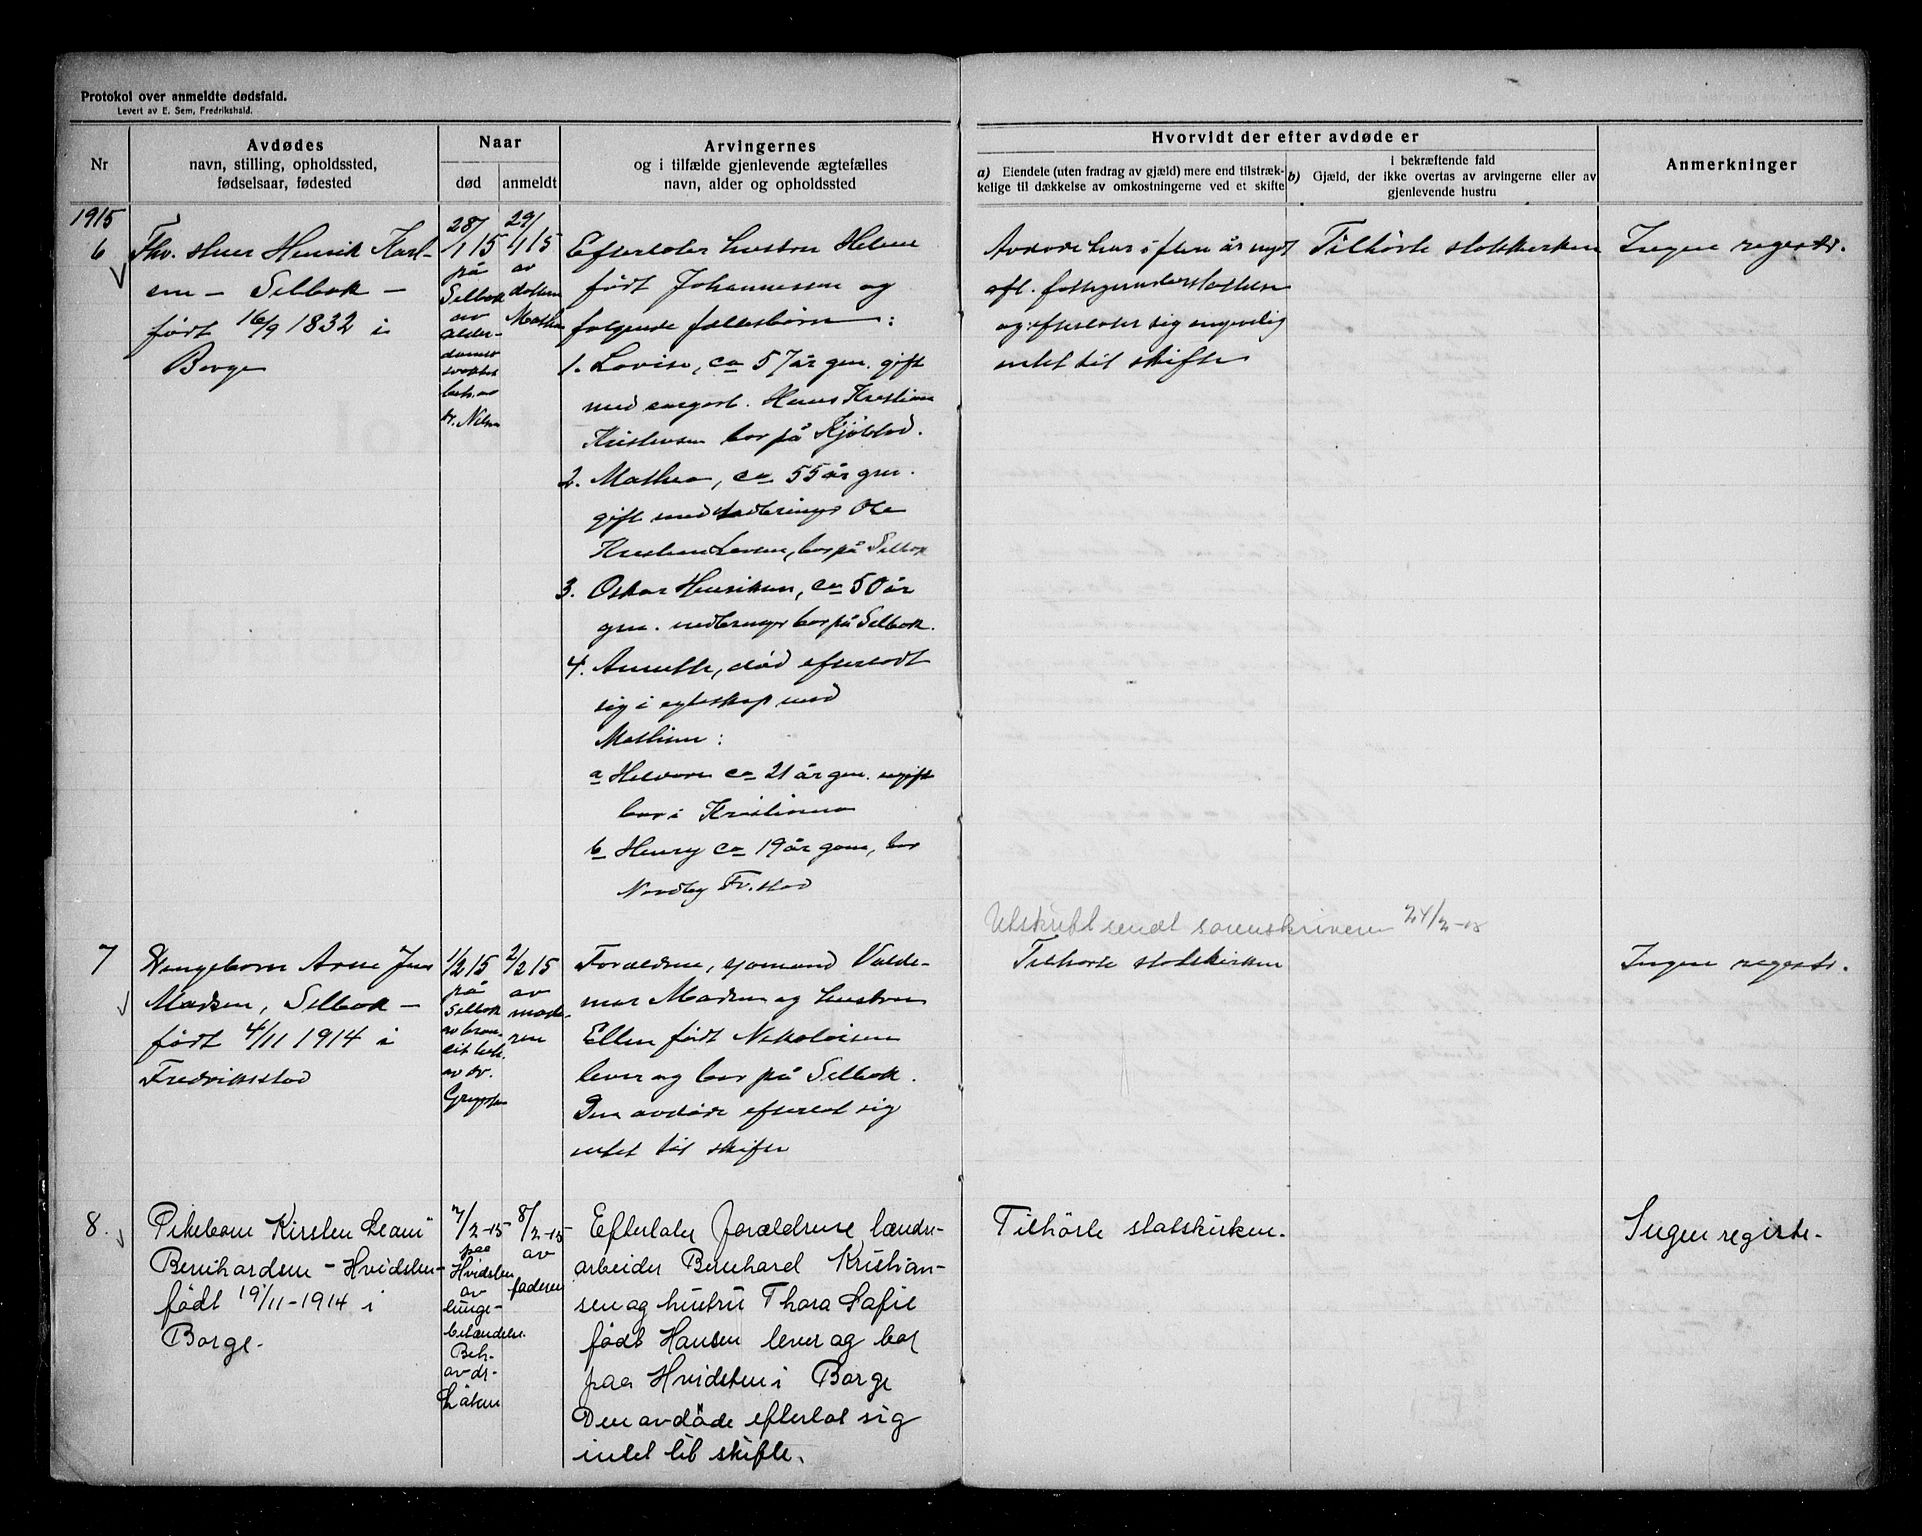 Protokol over anmeldte dødsfald.
Levert av E. Sem, Fredrikshald.
Nr
Avdødes
navn, stilling, opholdssted,
fødselsaar, fødested
Naar
død
anmeldt
Arvingernes
og i tilfælde gjenlevende ægtefælles
navn, alder og opholdssted
Hvorvidt der efter avdøde er
a) Eiendele (uten fradrag av gjæld) mere end tilstræk-
kelige til dækkelse av omkostningerne ved et skifte
i bekræftende fald
b) Gjæld, der ikke overtas av arvingerne eller av
gjenlevende hustru
Anmerkninger
1915
6
Fhv. Henrik Karl-
sen – Selbak –
født 16/9 1832 i
Borge
28/
1 15
på
Selbak
av
alder-
doms
svakhet
beh. av
dr. Nilsen
29/
1 15
av
datteren
Mathea
Efterlater hustru Helene
født Johannessen og
følgende fællesbørn:
1. Lovise, ca 57 år gm. gift
med Hans Kristian
Kristensen bor på Kjölstad.
2. Mathea, ca 55 år gm.
gift med Ole
Kristian Larsen, bor på Selbak
3. Oskar Henriksen, ca 50 år
gm. bor på Selbak.
4. Annette, død efterlodt
sig i egteskap med
Mathisen:
a ca 21 år gm. ugift
bor i Kristiania
b Henry ca 19 år gam, bor
Nordby Fr.stad
Avdøde har i flere år nydt
off. fattigunderstøttelse
og efterlater sig angivelig
intet til skifte
Tilhørte statskirken
Ingen registr.
Utskrift sendt sorenskriveren 24/2-15
7
Drengebarn Arne Jens
Madsen, Selbak –
født 4/11 1914 i
Fredriksstad
1/2 15
på
Selbak
av bron-
kit beh.
av dr.
2/2 15
av
mode-
ren
Forældrene, sjømand Valde-
mar Madsen og hustru
Ellen født Nikolaisen
lever og bor på Selbak.
Den avdøde efterlot sig
intet til skifte
Tilhørte statskirken
Ingen registr.
8.
Pikebarn Kirsten Leani
Bernhardsen – Hvidsten –
født 19/11-1914 i
Borge.
7/2-15
paa
Hvidsten
av
lunge-
betændelse.
Beh.
av dr.
8/2-15
av
faderen
Efterlater forældrene lændse-
arbeider Bernhard Kristian-
sen og hustru Thora Safie
født Hansen lever og bor
paa Hvidsten i Borge
Den avdøde efterlot sig
intet til skifte.
Tilhørte statskirken.
Ingen registr.